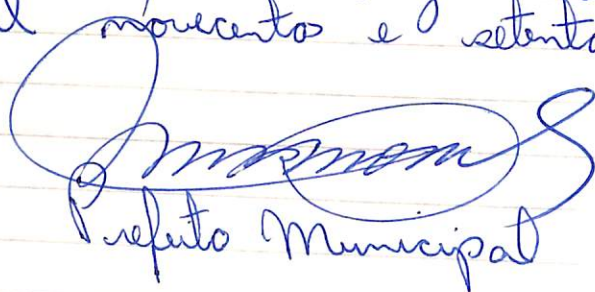 novecentos e setenta
Prefeito Municipal